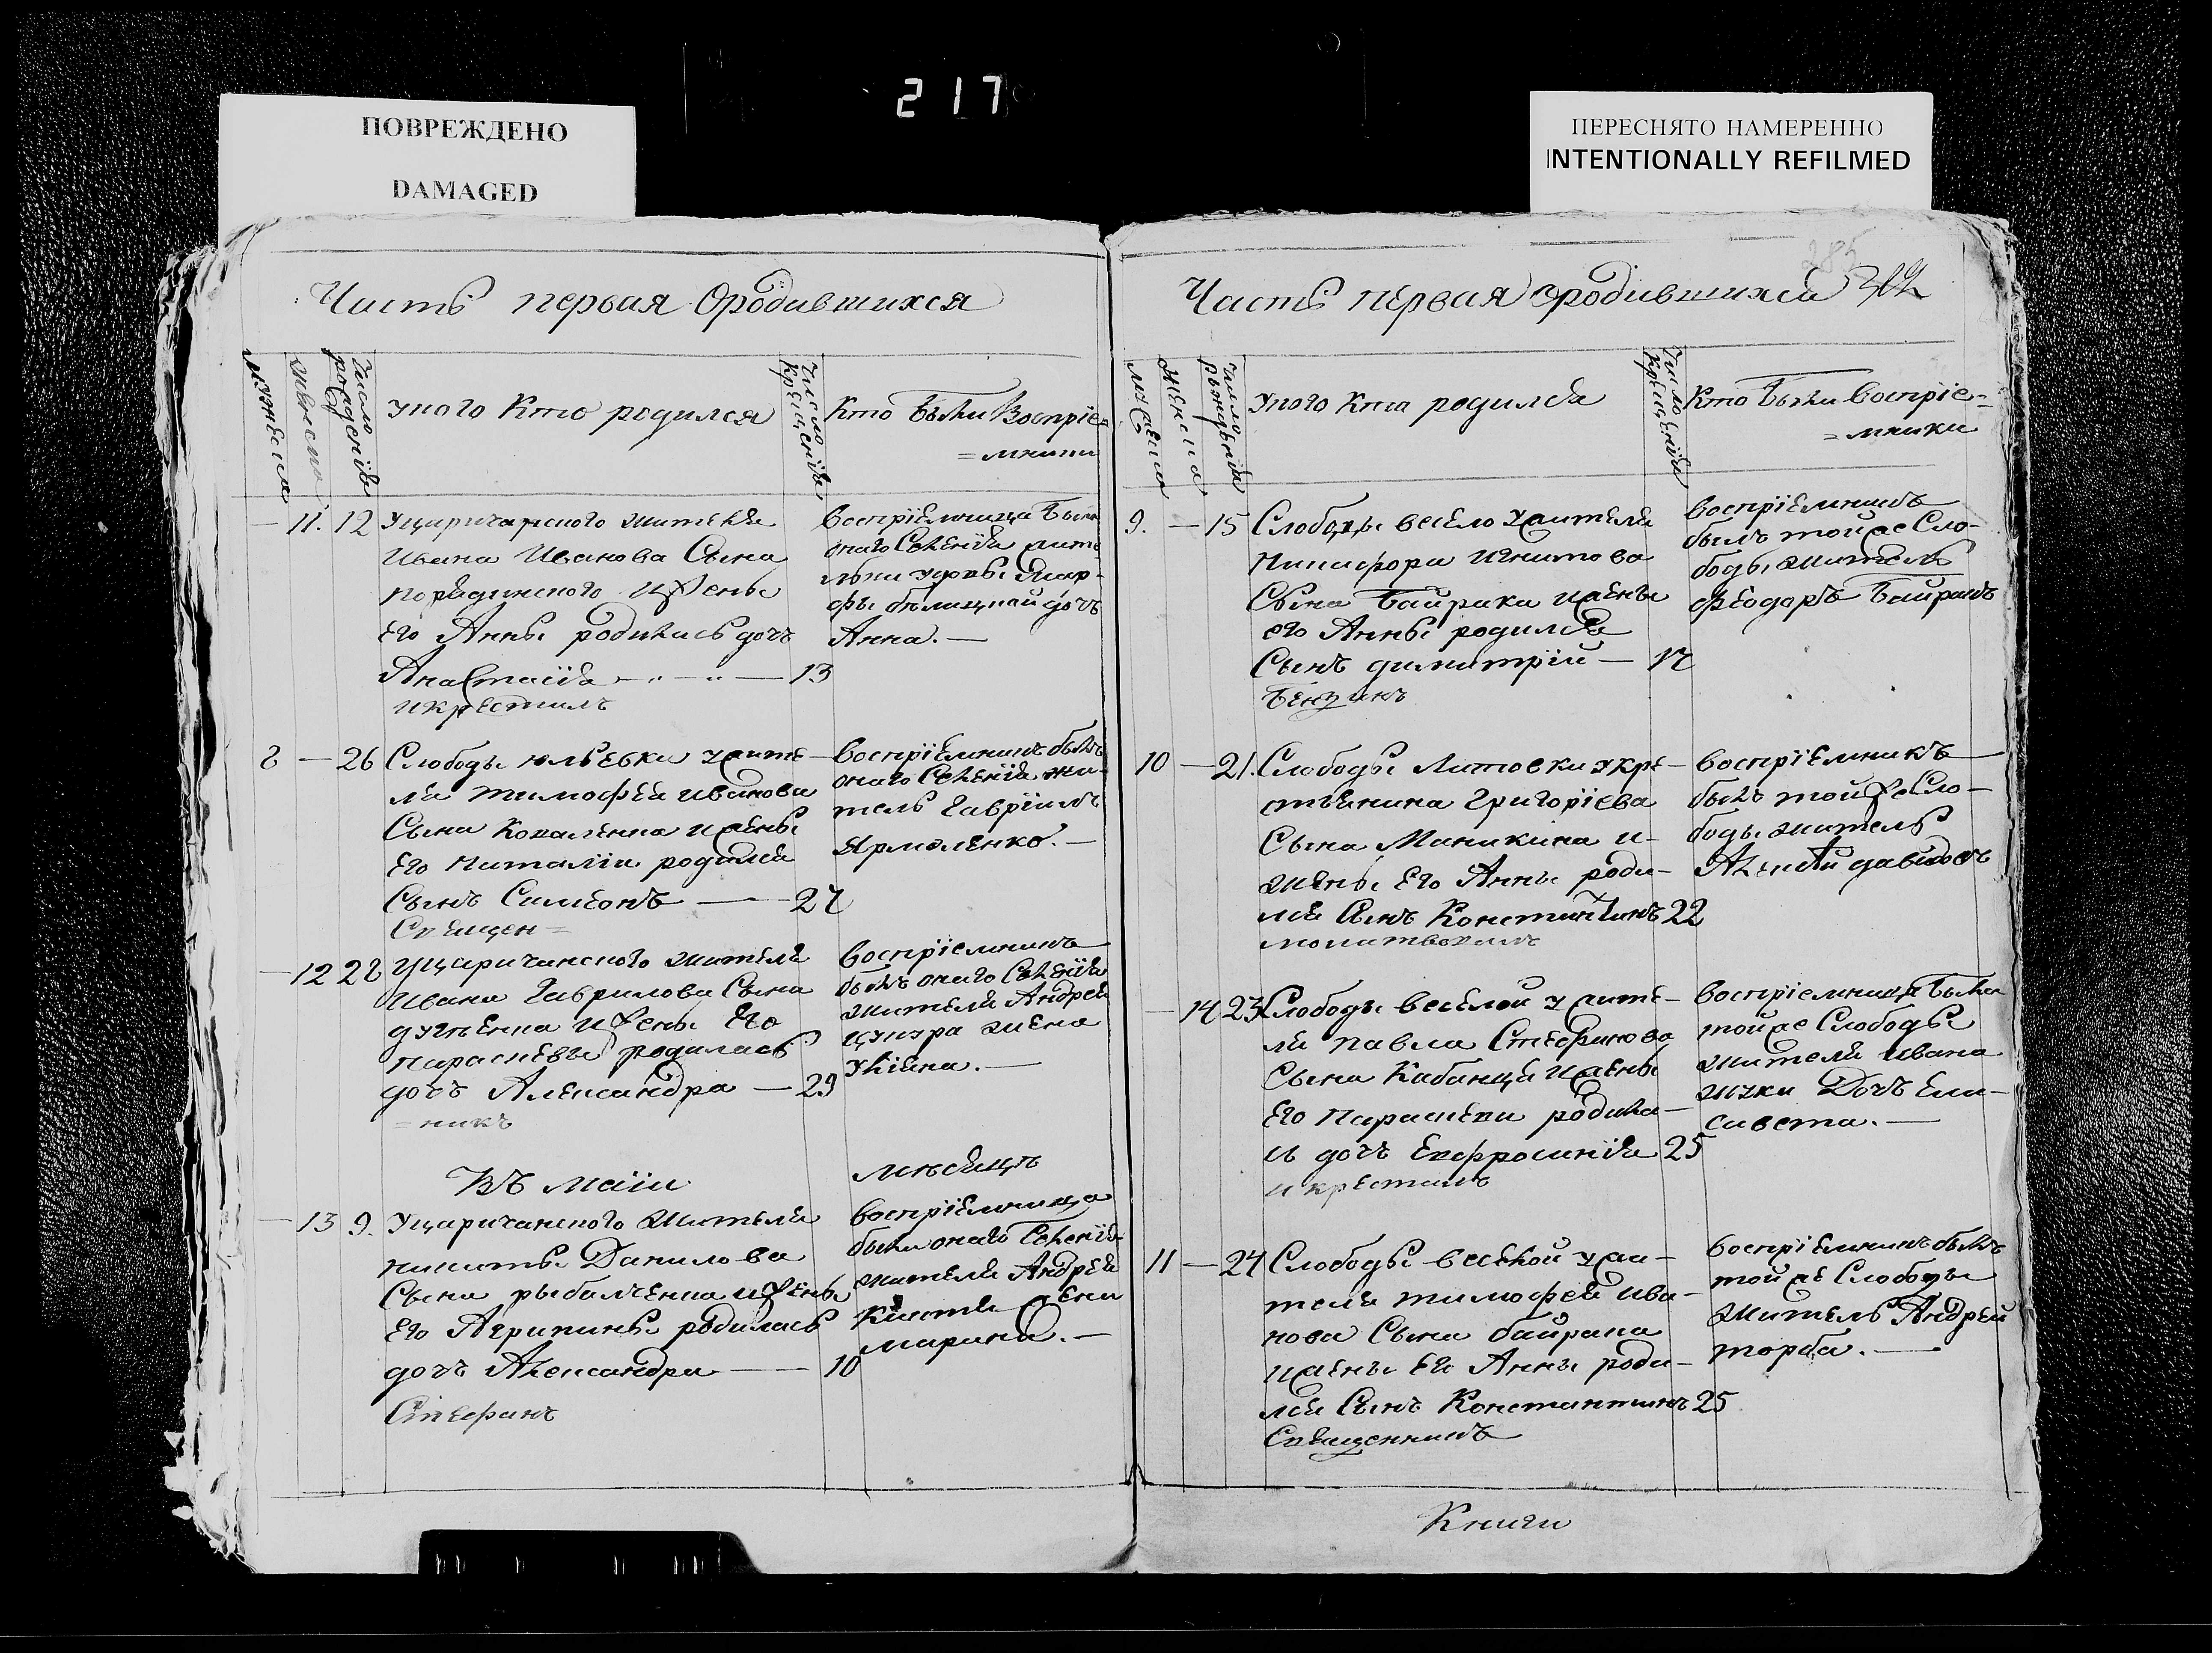 217
ПОВРЕЖДЕНО
DAMAGED
ПЕРЕСНЯТО НАМЕРЕННО
INTENTIONALLY REFILMED
Часть первая Ородившихся
мужеска
женска
число рожденія
Уного Кто родился
число крещенія
Кто были Воспріе=
=мники
11. 12 Уцаричанского жителя
Ивана Иванова Сына
его Анны родилась дочь
Анастасія 13
икрестилъ
воспріемница была
оного Селенія жите
дочь
Анна.
8 26 Слободы юльевки ужите
ля тимофея иванова
Сына Коваленка ижены
Его Наталіи родился
Сынъ Симеонъ 27
Священ=
воспріемникъ былъ
оного Селенія жи-
тель Гавріилъ
Ярмоленко.
12 28 Уцаричанского жителя
Ивана Гаврилова Сына
ижены Его
параскевы родилась
дочь Александра 29
=никъ
воспріемника
былъ оного Селенія
жителя Андрея
жена
Уліяна.
Въ маіи
месяцъ
13 9. Уцаричанского жителя
никиты Данилова
Сына рыбалченка ижены
Его Агрипины родилась
дочь Александра 10
Стефанъ
воспріемница
была оного Селенія
жителя Андрея
жена
марина.
285
Часть первая ородившихся
мужеска
женска
число рожденія
Уного Кто родился
число крещенія
Кто были воспріе=
=мники
9. 15 Слободы весело ужителя
Никифора игнатова
Сына Байрака ижены
его Анны родился
Сынъ димитрій 17
воспріемникъ
былъ тойже Сло-
боды житель
Феодоръ Байракъ
10 21. Слободы Литовки укре-
стьянина Григоріева
Сына Маникина и-
жены Его Анны роди-
лся Сынъ Константинъ 22
молитвовалъ
воспріемникъ
былъ тойже Сло-
боды житель
Алексей давидовъ
14 23 Слободы веселой ужите-
ля павла Стефанова
Сына Кабанця ижены
Его Параскеви родила-
сь дочь Евфросинія 25
и крестилъ
воспріемница была
тойже Слободы
жителя ивана
жуки Дочь Ели-
савета.
11 24 Слободы веселой ужи-
теля тимофея Ива-
нова Сына байрака
ижены Его Анны роди-
лся Сынъ Константинъ 25
Священникъ
воспріемникъ былъ
тойже Слободы
житель Андрей
торба.
Книги